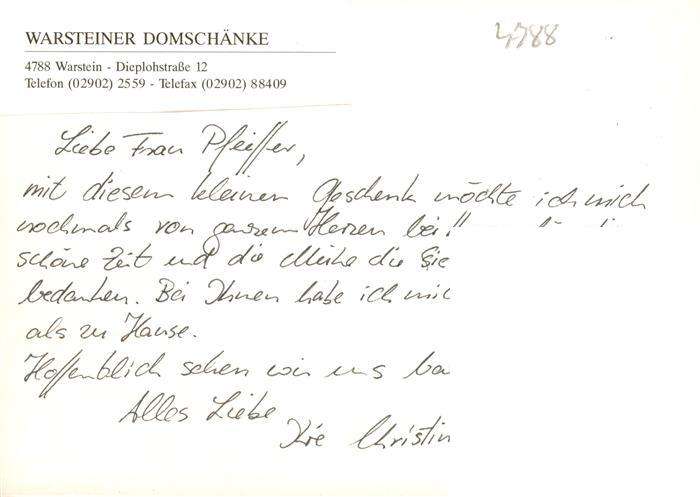 WARSTEINER DOMSCHÄNKE
4788 Warstein - Dieplohstraße 12
Telefon (02902) 2559 - Telefax (02902) 88409
4788
Liebe Frau Pfeiffer,
mit diesem kleinen Geschenk möchte ich mich
nochmals von ganzem Herzen bei
schöne Zeit und die Mühe die Sie
bedanken. Bei Ihnen habe ich
als zu Hause.
Hoffentlich sehen wir uns
Alles Liebe
Ihre Christin